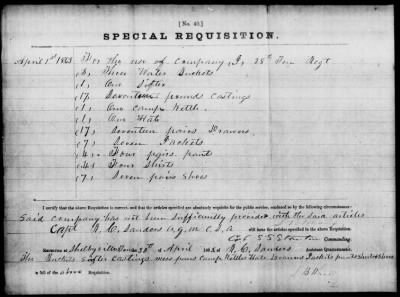 [No. 40.]
SPECIAL REQUISITION.
April 1st 1863 For the use of Company I, 28th Ten Regt
(3) Three Water Buckets
(1) One Sifter
(17) Seventeen pounds Castings
(1) One Camp Kettle
(1) One Hat
(17) Seventeen pairs Drawers
(7) Seven Jackets
(4) Four pairs pant
(4) Four Shirts
(7) Seven pairs Shoes
I certify that the above Requisition is correct, and that the articles specified are absolutely requisite for the public service, rendered so by the following circumstances:
Said company has not been sufficiently provided with the said articles
Capt. R. C. Sanders A.Q.M. C.S.A will issue the articles specified in the above Requisition.
Col S S Stanton Commanding.
Received at Shelbyville Ten 28th of April 1863 of R. C. Sanders Assistant Quartermaster,
Thr Buckets Sifter Castings mess pans Camp Kettles Hats Drawers Jackets pants shirts shoes
in full of the above Requisition.